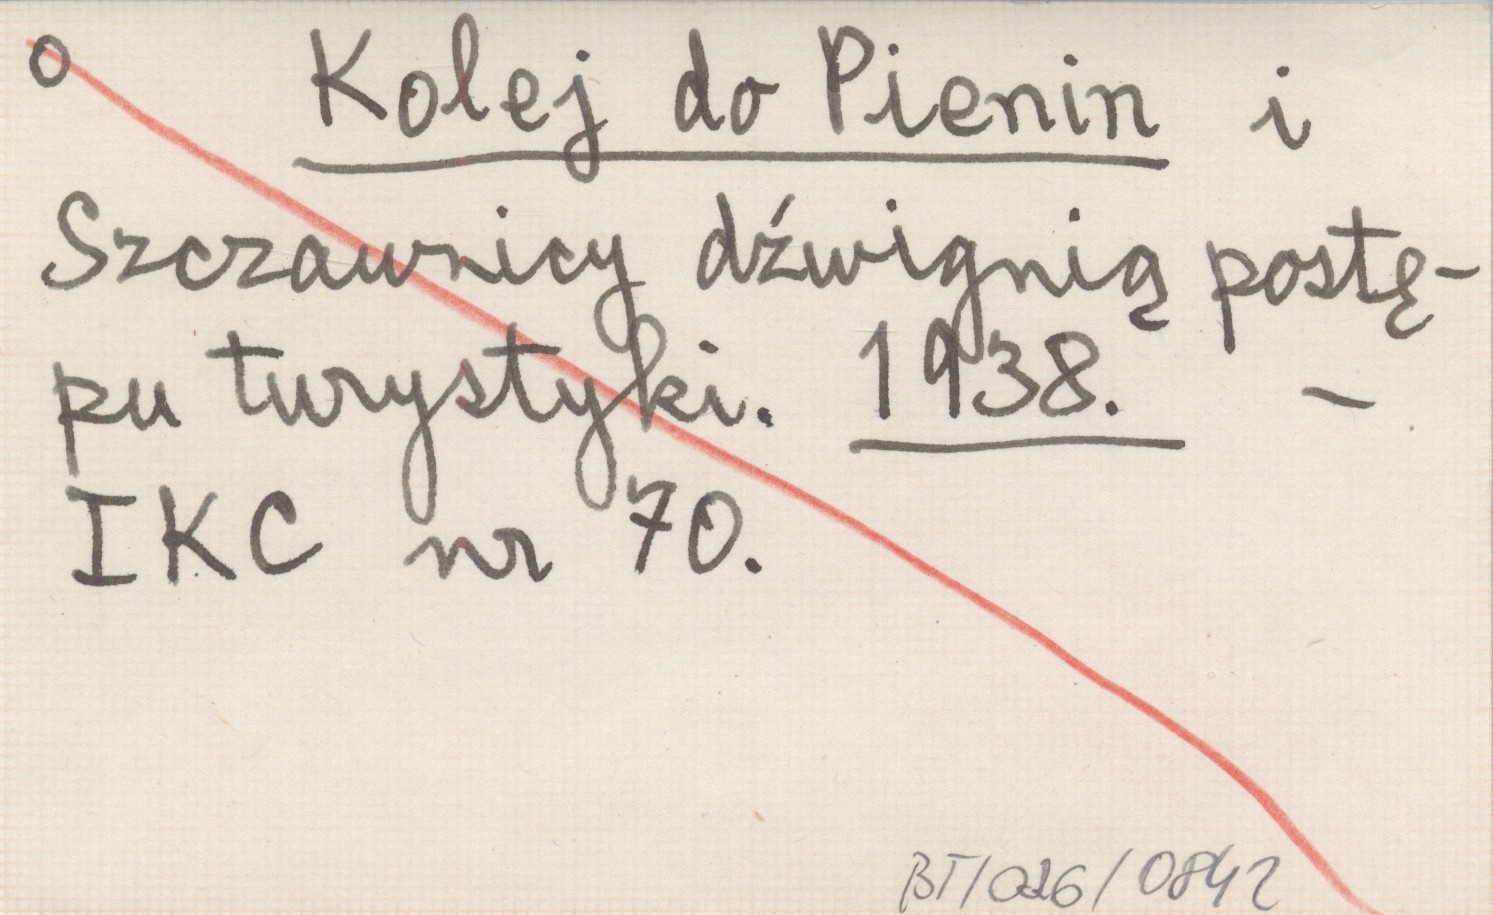 o Kolej do Pienin i
Szczawnicy dźwignią postę-
pu turystyki. 1938. –
IKC nr 70.
BT/026/0842